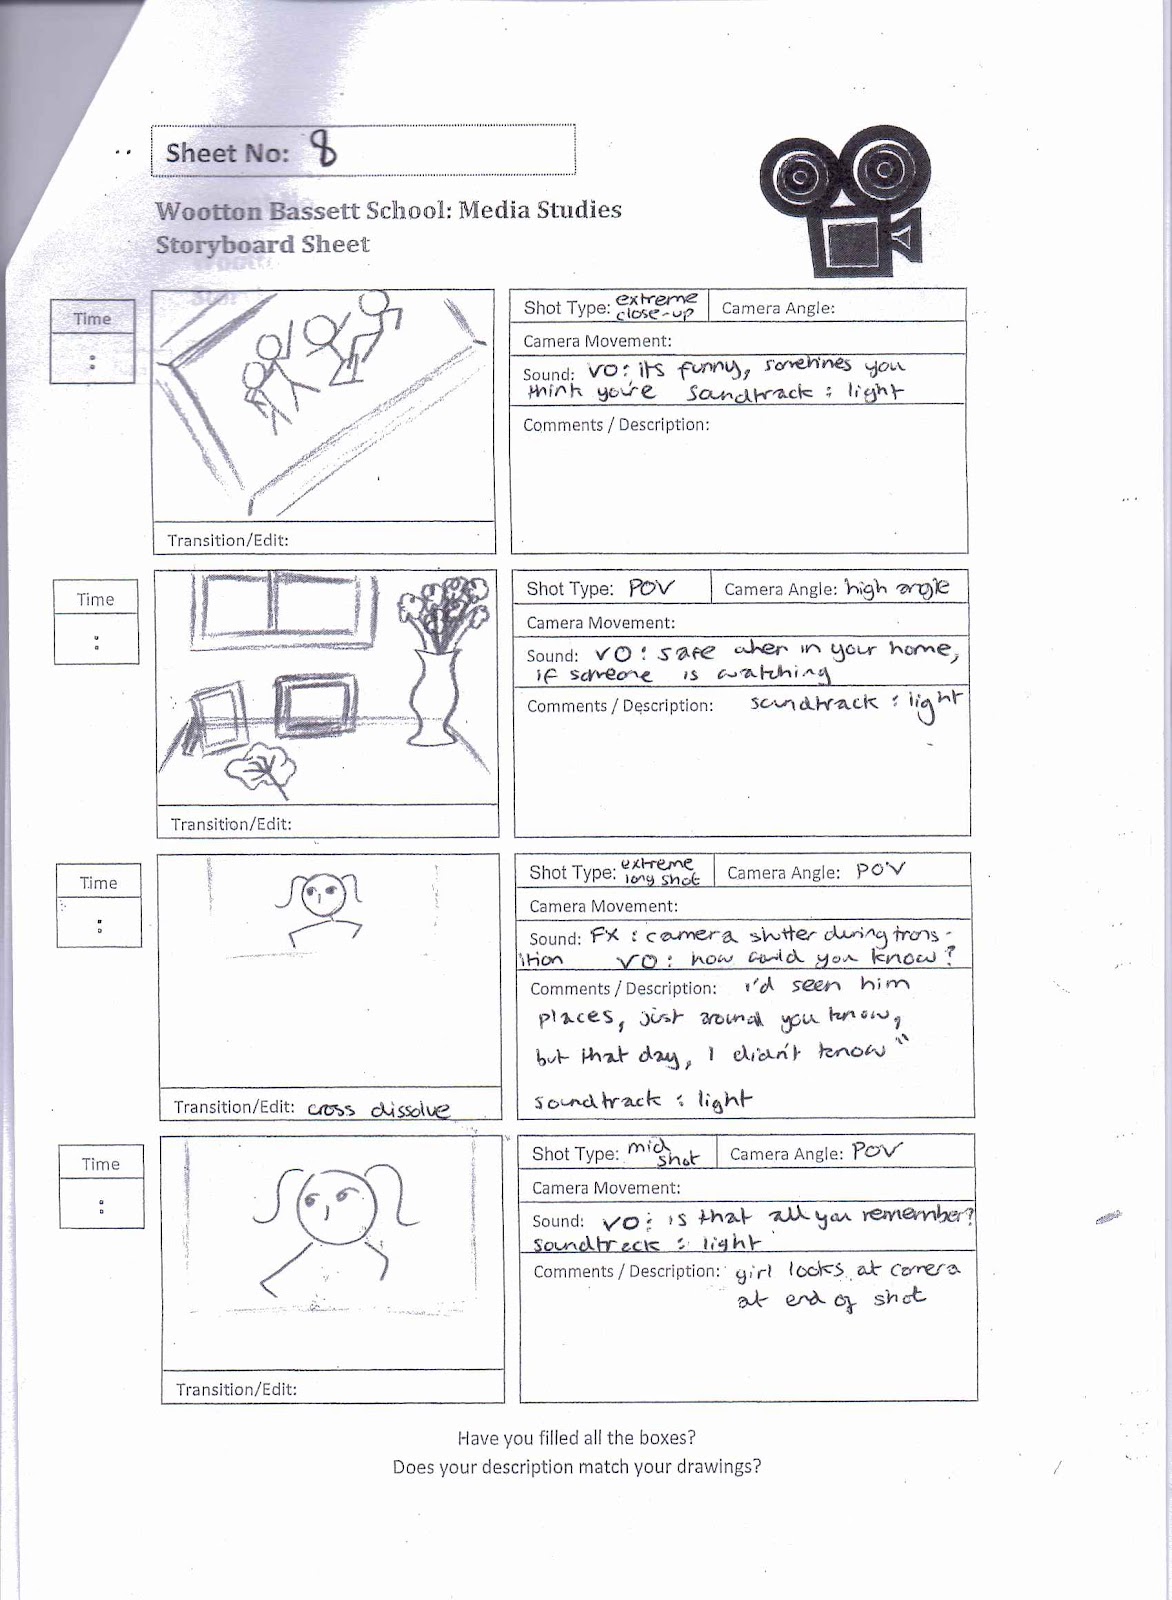 Sheet No: 8
Wootton Bassett School: Media Studies
Storyboard Sheet
Time
:
Shot Type: extreme close-up
Camera Angle:
Camera Movement:
Sound: VO: its funny, sometimes you
think you're soundtrack : light
Comments / Description:
Transition/Edit:
Time
:
Shot Type: POV
Camera Angle: high angle
Camera Movement:
Sound: VO: safe when in your home,
if someone is watching
Comments / Description: soundtrack : light
Transition/Edit:
Time
:
Shot Type: extreme long shot
Camera Angle: POV
Camera Movement:
Sound: FX : camera shutter during trans-
ition VO: how could you know?
Comments / Description: i'd seen him
places, just around you know,
but that day, I didn't know"
soundtrack : light
Transition/Edit: cross dissolve
Time
:
Shot Type: mid shot
Camera Angle: POV
Camera Movement:
Sound: VO: is that all you remember?
soundtrack : light
Comments / Description: girl looks at camera
at end of shot
Transition/Edit:
Have you filled all the boxes?
Does your description match your drawings?